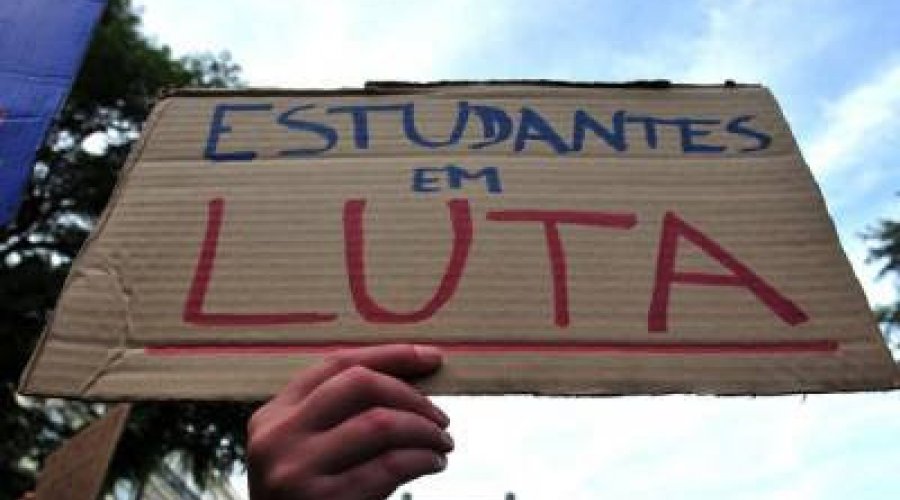 ESTUDANTES
EM
LUTA